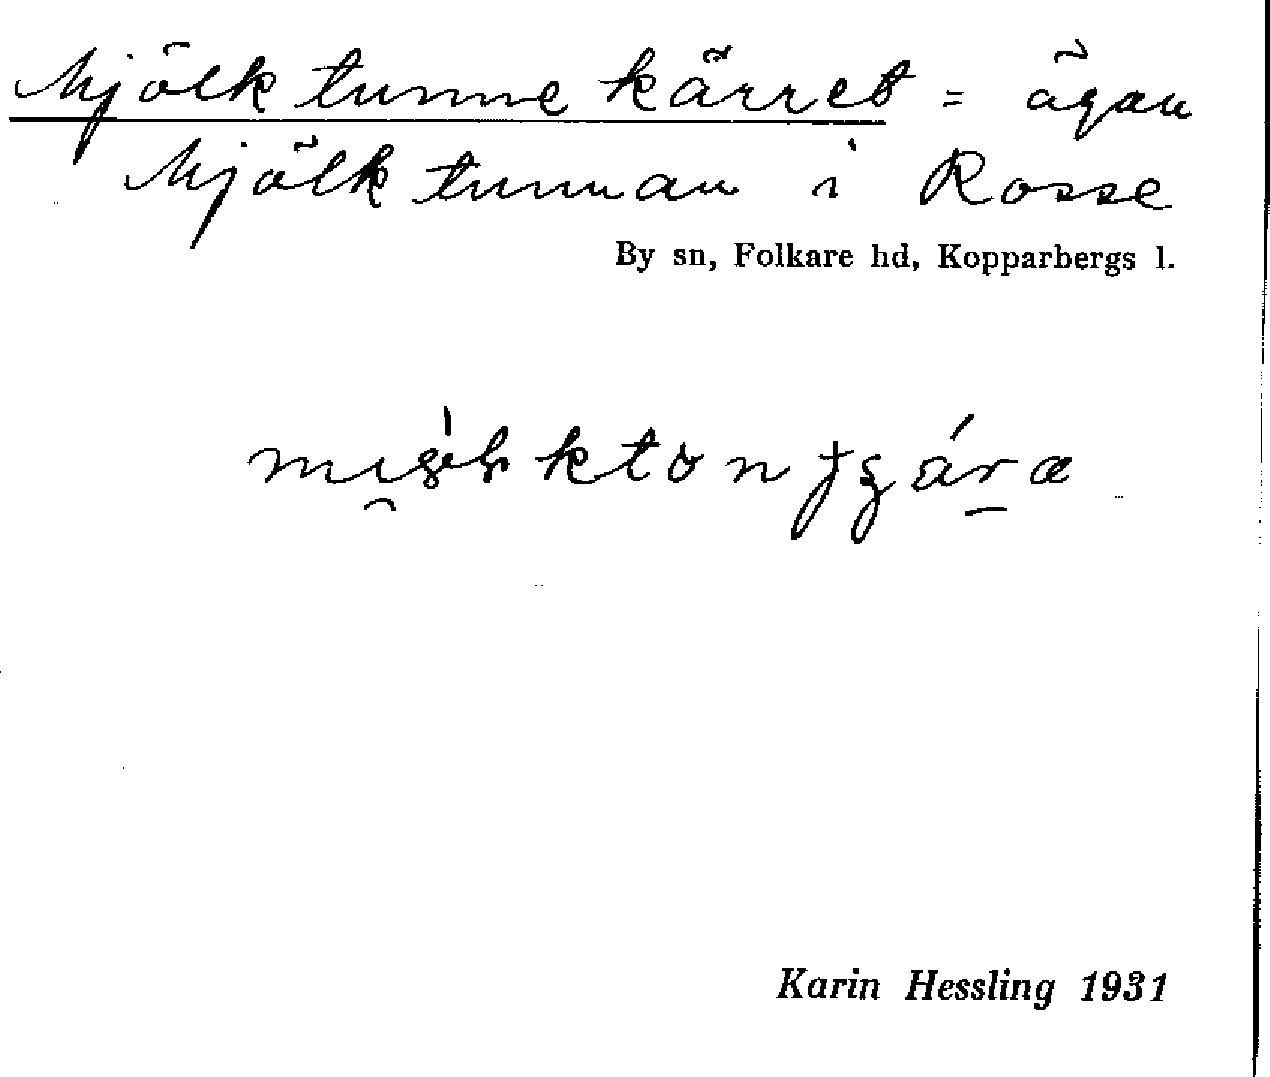 Mjölktunnekärret = ägan
Mjölktunnan i Rosse
By sn, Folkare hd, Kopparbergs l.
Karin Hessling 1931